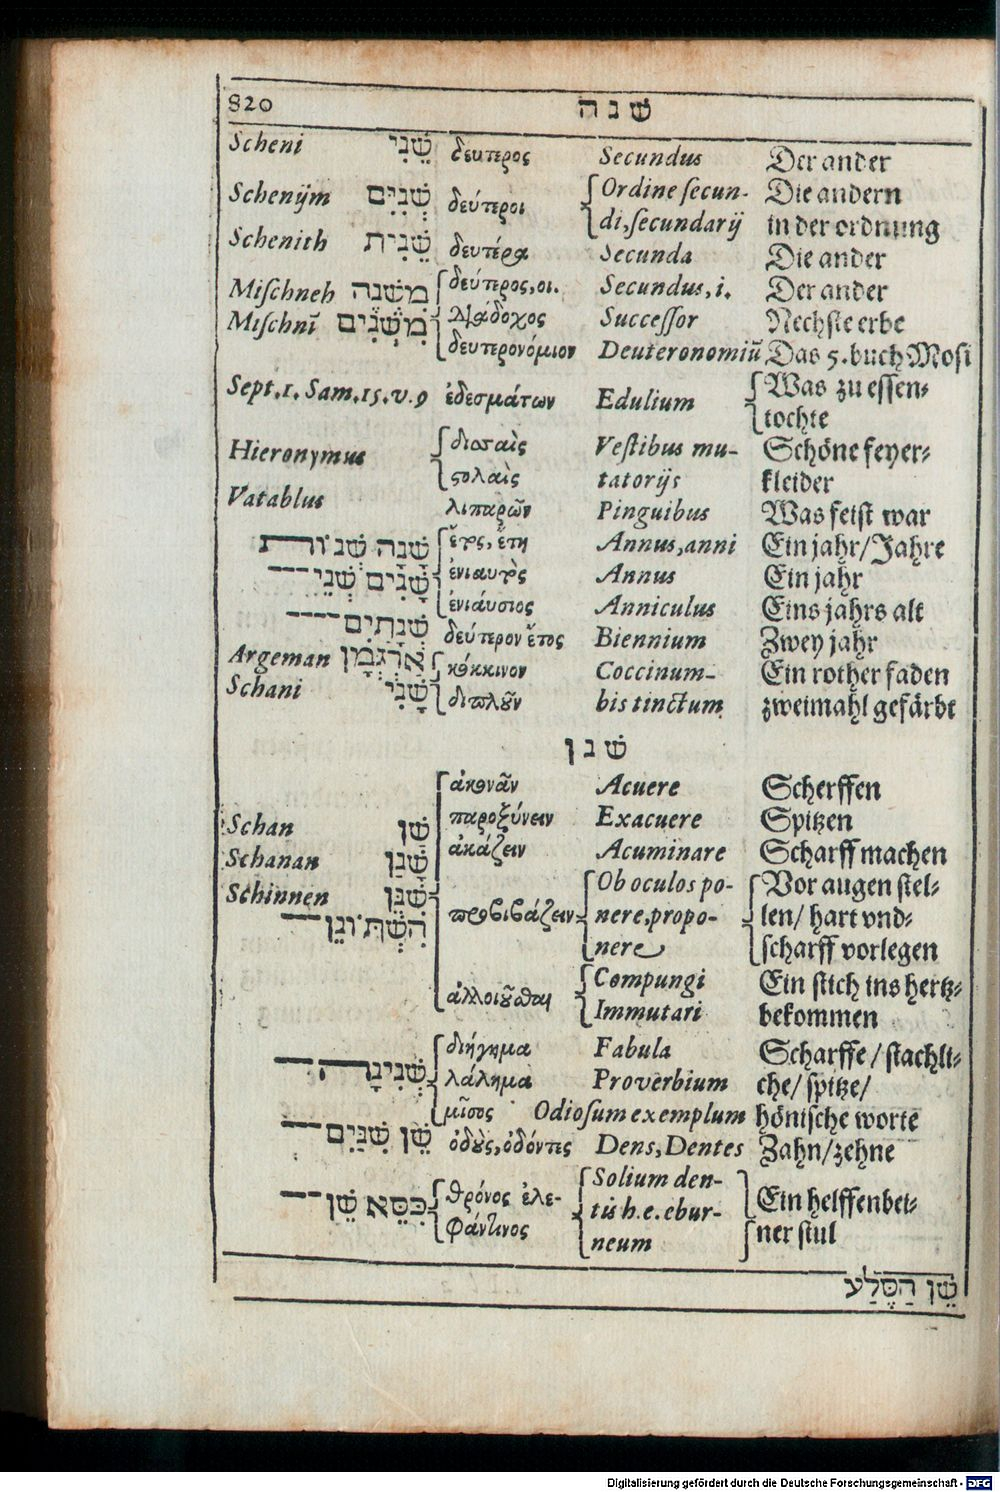 820 שׁנה
Scheni שֵׁנִי δευτερος Secundus Der ander
Schenijm שְׁנִיִּם δεύτεροι Ordine secun- Die andern
di, secundarij in der ordnung
Schenith שֵׁנִית δευτέρα Secunda Die ander
Mischneh מִשְׁנֶה δεύτερος, οι. Secundus, i. Der ander
Mischnī מִשְׁנִים διάδοχος Successor Nechste erbe
δευτερονόμιον Deuteronomiū Das 5. buch Mosi
Sept. 1. Sam. 15. v. 9 ἐδεσμάτων Edulium Was zu essen-
tochte
Hieronymus Vestibus mu- Schöne feyer-
ςολαὶς tatorijs kleider
Vatablus λιπαρῶν Pinguibus Was feist war
שָׁנָה שְׁנוֹת ἔτος, ἔτη Annus, anni Ein jahr/Jahre
שָׁנִים שְׁנֵי--- ἐνιαυτὸς Annus Ein jahr
ἐνιάυσιος Anniculus Eins jahrs alt
שְׁנָתַיִם---- δεύτερον ἔτος Biennium Zwey jahr
Argeman אַרְגְּמָן κόκκινον Coccinum- Ein rother faden
Schani שָׁנִי διπλοῦν bis tinctum zweimahl gefärbt
שׁנן
ἀκονᾶν Acuere Scherffen
Schan שַׁן παροξύνειν Exacuere Spitzen
Schanan שָׁנַן ἀκάζειν Acuminare Scharff machen
Schinnen שִׁנֵּן Ob oculos po- Vor augen stel-
הִשְׁתּוֹנֵן--- προβιβάζειν nere, propo- len/ hart vnd-
nere scharff vorlegen
ἀλλοιοῦσθαι Compungi Ein stich ins hertz-
Immutari bekommen
διήγημα Fabula Scharffe/ stachli-
שְׁנִינָה λάλημα Proverbium che/ spitze/
μῖσος Odiosum exemplum hönische worte
שֵׁן שִׁנַּיִם--- ὀδοὺς, ὀδόντες Dens, Dentes Zahn/zehne
Solium den-
כִּסֵּא שֵׁן--- θρόνος ἐλε- tis h. e. ebur- Ein helffenbei-
φάντινος neum ner stul
שֵׁן הַסֶּלַע
Digitalisierung gefördert durch die Deutsche Forschungsgemeinschaft - DFG